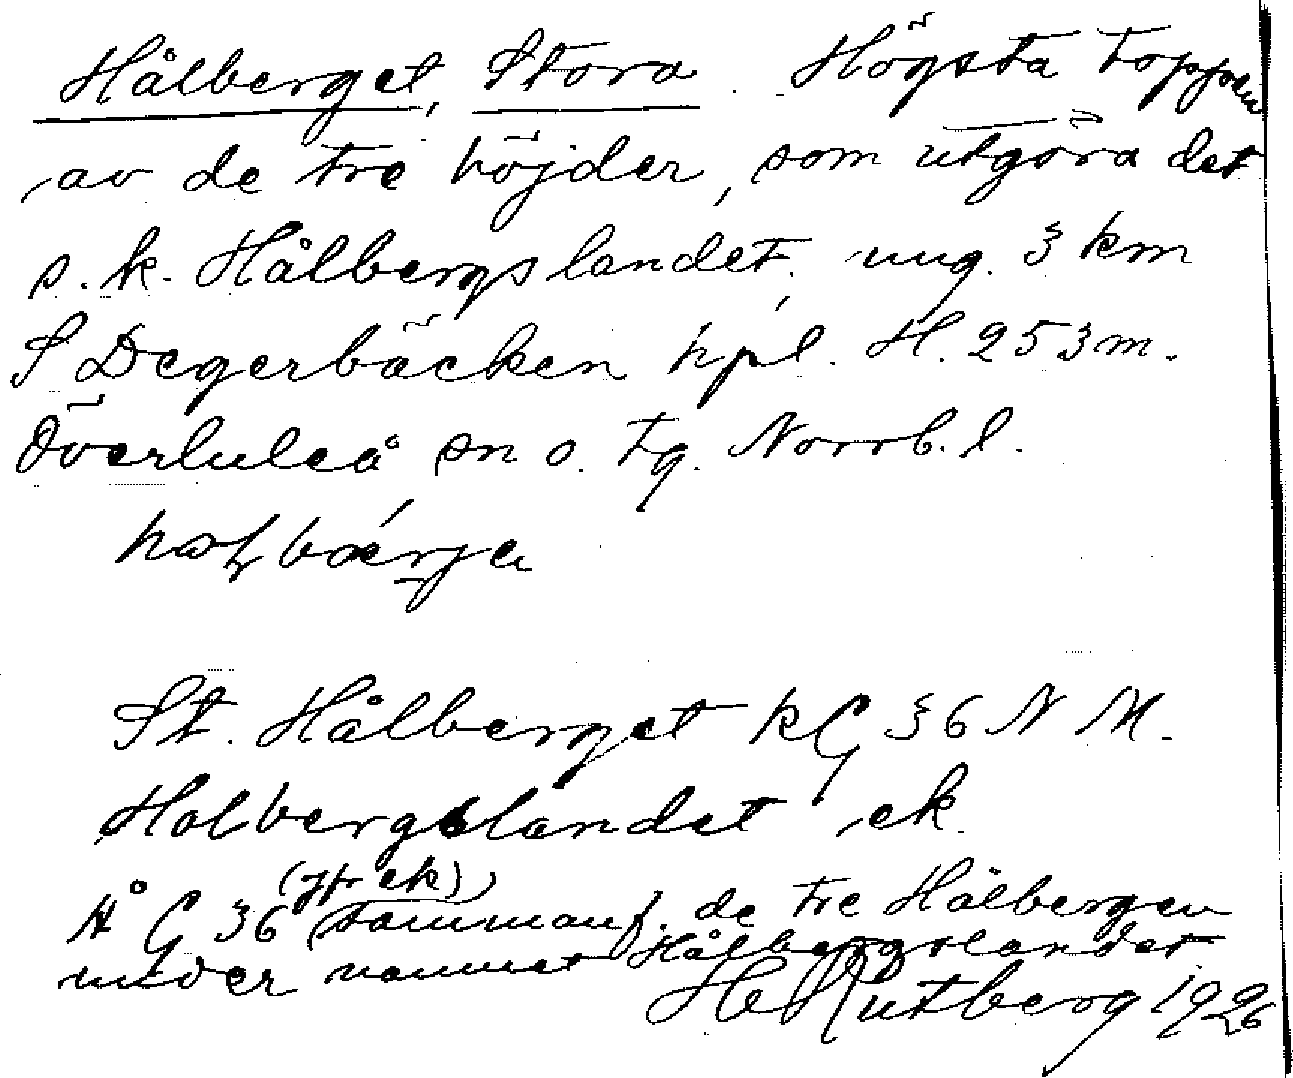 Hålberget, Stora. Högsta toppen
av de tre höjder, som utgöra det
s.k. Hålbergslandet, ung. 3 km
S Degerbäcken hpl. H. 253 m.
Överluleå sn o. tg. Norrb. l.
St. Hålberget kG 36 N M.
Holbergslandet ek.
(jfr ek)
HÅ G 36 sammanf. de tre Hålbergen
under namnet Hålbergslandet
He Rutberg 1926